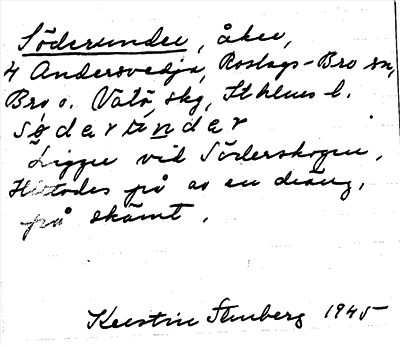 Söderunder, åker,
4 Andersvedja, Roslags-Bro sn,
Bro o. Vätö skg, Sthlms l.
södərùndər
Ligger vid Söderskogen,
Hittades på av en dräng,
på skämt.
Kerstin Stenberg 1945